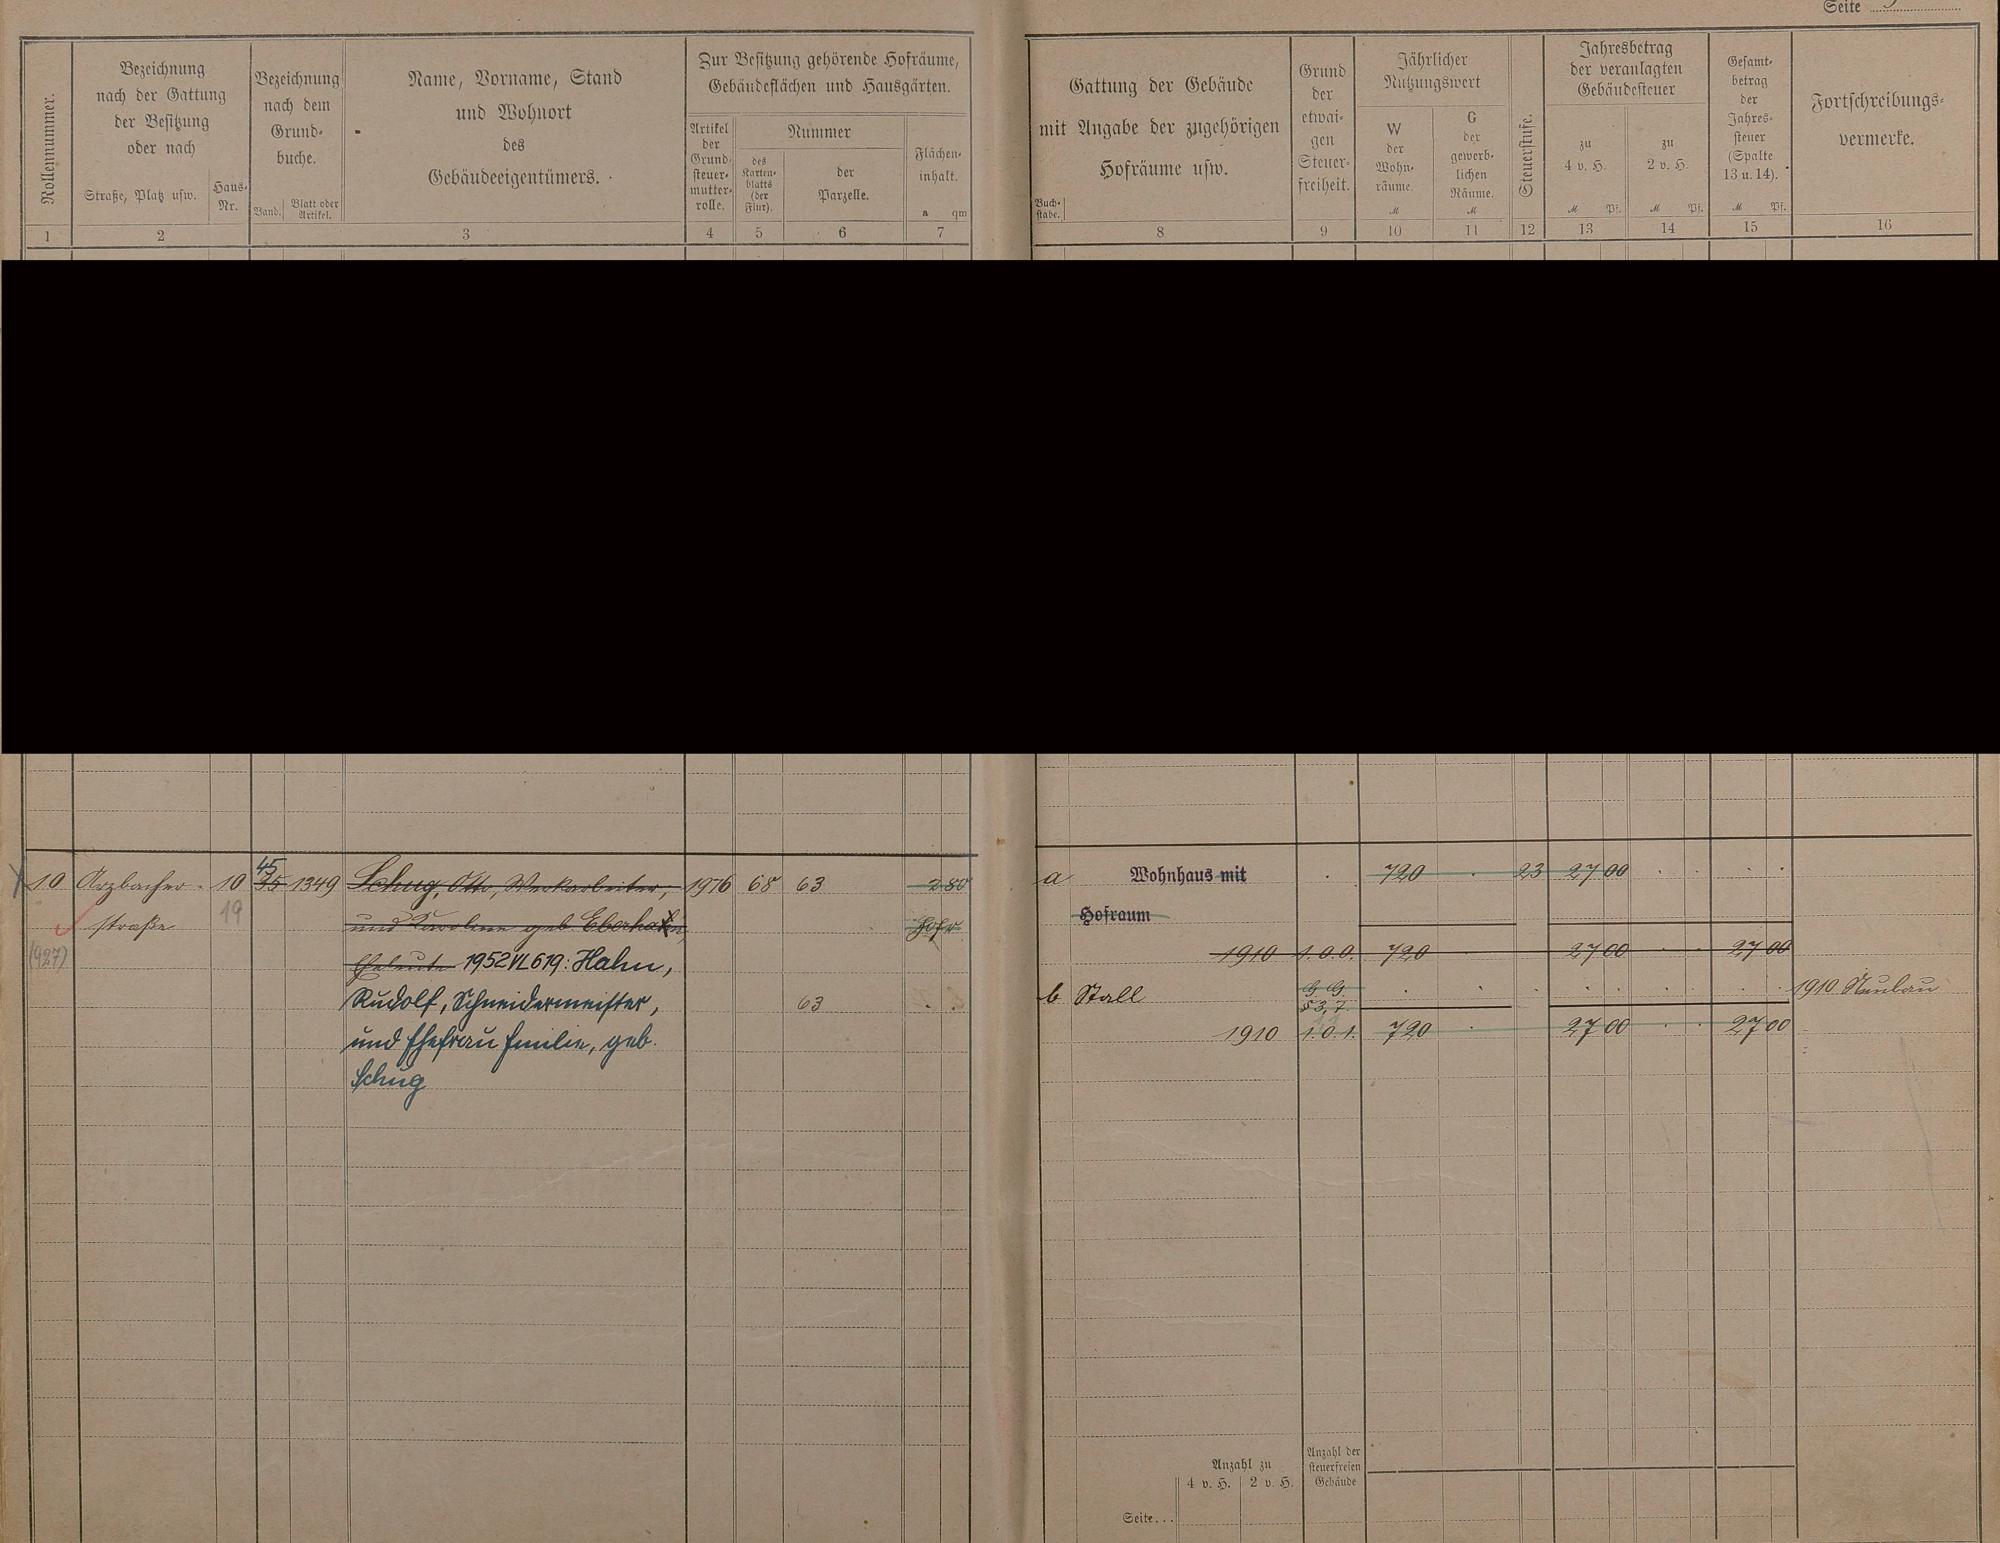 Seite
Rollennummer.
Bezeichnung
nach der Gattung
der Besitzung
oder nach
Straße, Platz usw.
Haus-
Nr.
Bezeichnung
nach dem
Grund-
buche.
Band.
Blatt oder
Artikel.
Name, Vorname, Stand
und Wohnort
des
Gebäudeeigentümers.
Zur Besitzung gehörende Hofräume,
Gebäudeflächen und Hausgärten.
Artikel
der
Grund-
steuer-
mutter-
rolle.
Nummer
des
Karten-
blatts
(der
Flur).
der
Parzelle.
Flächen-
inhalt.
a qm
1 2 3 4 5 6 7
Gattung der Gebäude
mit Angabe der zugehörigen
Hofräume usw.
Buch-
stabe.
Grund
der
etwai-
gen
Steuer-
freiheit.
Jährlicher
Nutzungswert
W
der
Wohn-
räume.
M
G
der
gewerb-
lichen
Räume.
M
Steuerstufe.
Jahresbetrag
der veranlagten
Gebäudesteuer
zu
4 v. H.
M Pf.
zu
2 v. H.
M Pf.
Gesamt-
betrag
der
Jahres-
steuer
(Spalte
13 u. 14).
M Pf.
Fortschreibungs-
vermerke.
8 9 10 11 12 13 14 15 16
45
10 Arzbacher- 10 35 1349 Schug, Otto, Werkarbeiter, 1976 68 63 2 80
19
straße und Karoline geb. Eberhahn, Hofr.
(927)
Eheleute 1952 VL 619: Hahn,
Rudolf, Schneidermeister, 63
und Ehefrau Emilie, geb.
Schug
a Wohnhaus mit 720 23 27 00
Hofraum
1910 1.0.0. 720 27 00 27 00
b Stall G. G. 1910 Neubau
§ 3,7.
1910 1.0.1. 720 27 00 27 00
Anzahl zu
4 v. H. 2 v. H.
Anzahl der
steuerfreien
Gebäude
Seite...